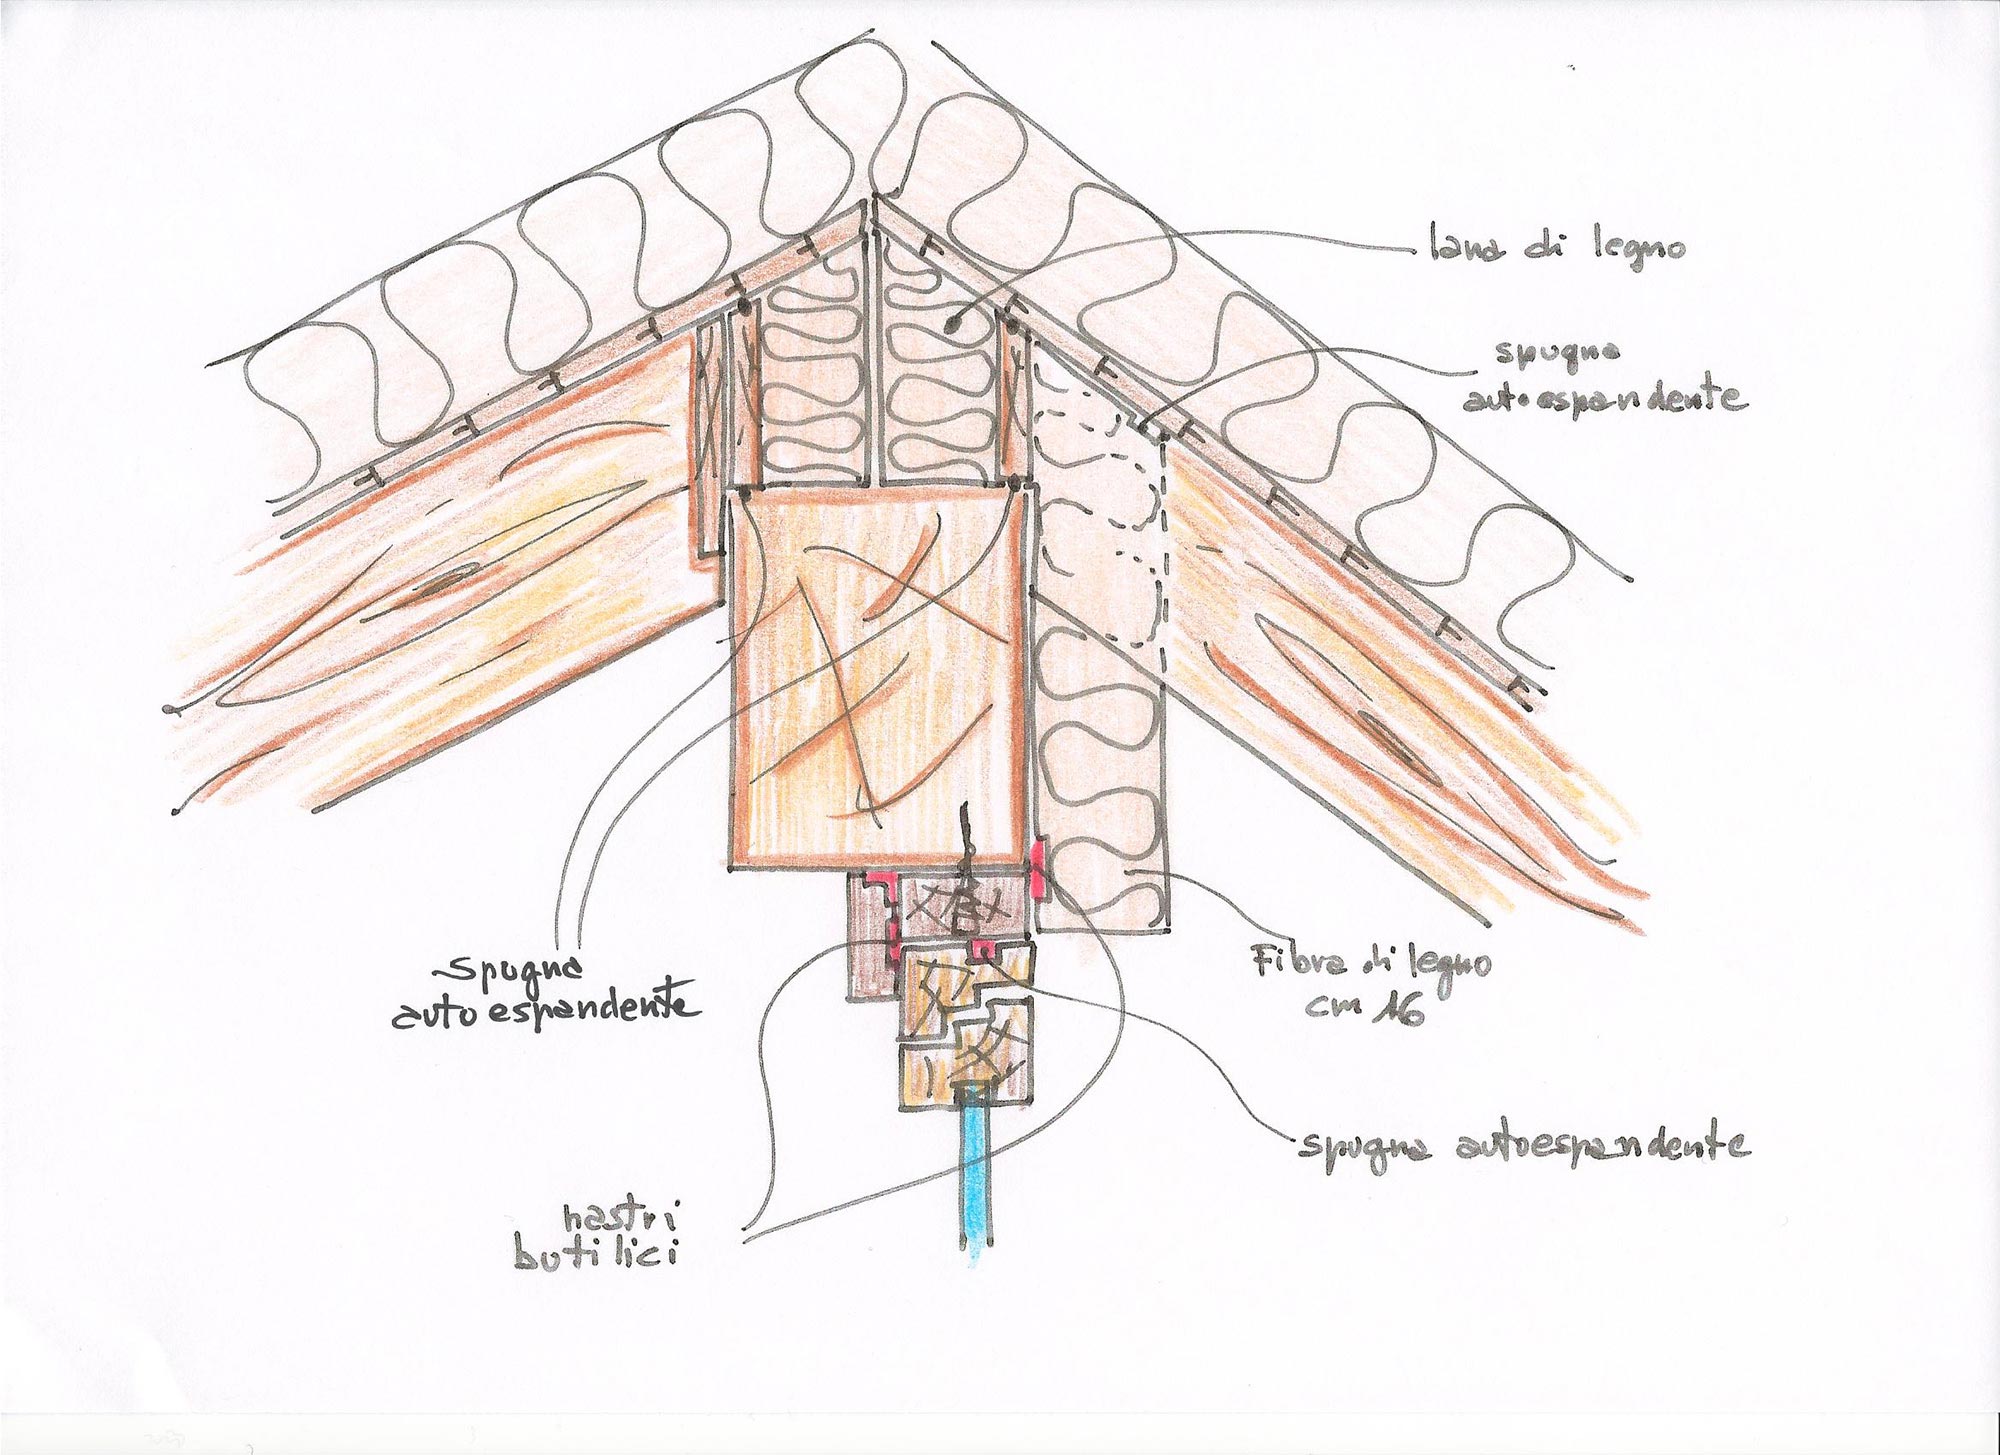 lana di legno
spugna
autoespandente
spugna
autoespandente
Fibra di legno
cm 16
spugna autoespandente
nastri
butilici